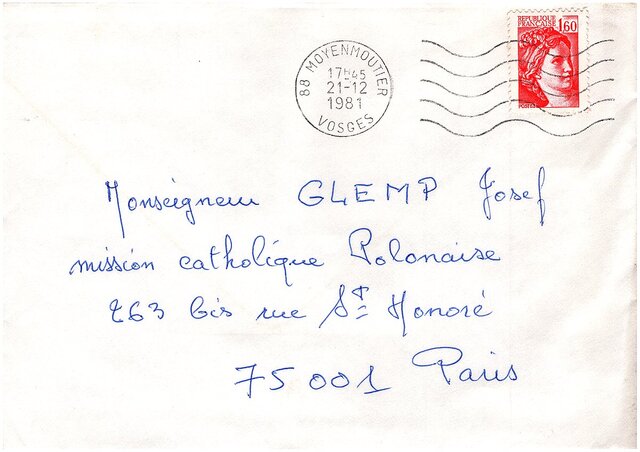 RÉPUBLIQUE
FRANÇAISE 1,60
88 MOYENMOUTIER
17H45
21-12
1981
VOSGES
Monseigneur GLEMP Josef
mission catholique Polonaise
263 bis rue St Honoré
75001 Paris